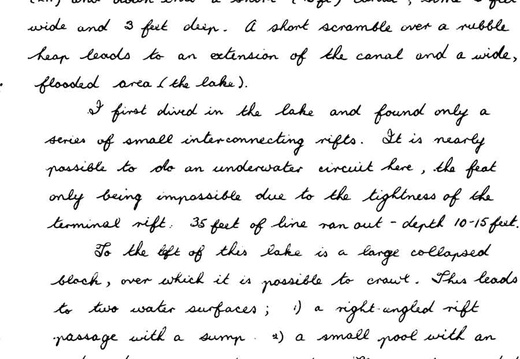 and down a short ( canal, some
wide and 3 feet deep. A short scramble over a rubble
heap leads to an extension of the canal and a wide,
flooded area (the lake).
I first dived in the lake and found only a
series of small interconnecting rifts. It is nearly
possible to do an underwater circuit here, the feat
only being impossible due to the tightness of the
terminal rift. 35 feet of line ran out - depth 10-15 feet.
To the left of this lake is a large collapsed
block, over which it is possible to crawl. This leads
to two water surfaces; 1) a right angled rift
passage with a sump. 2) a small pool with an